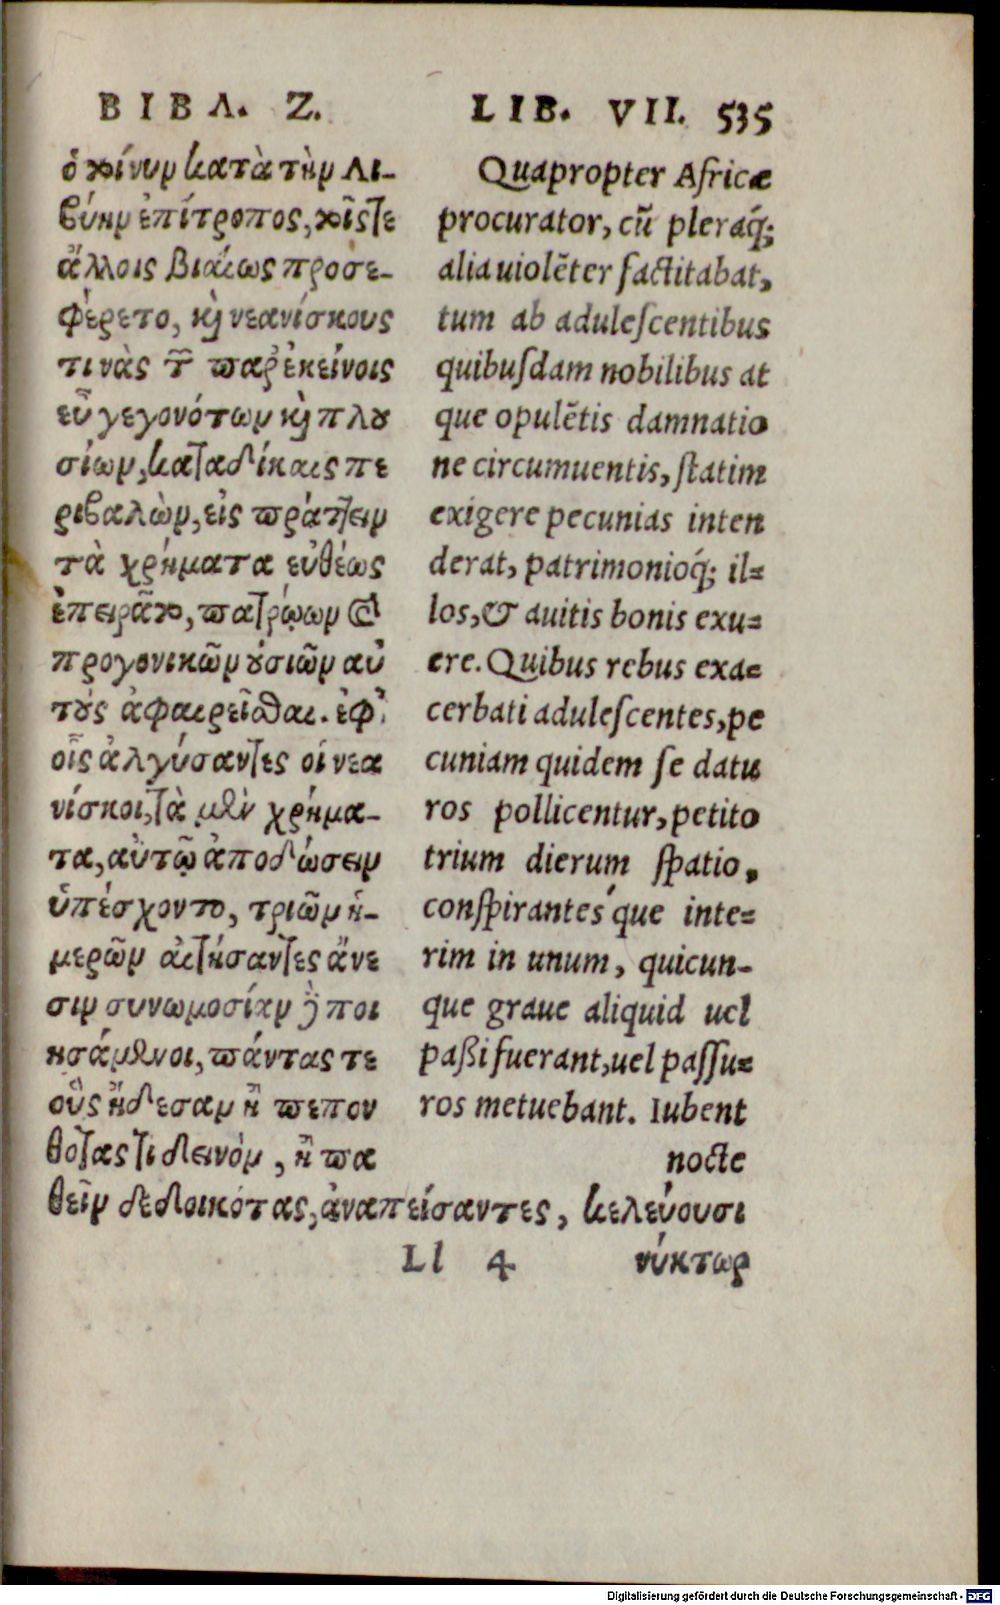 ΒΙΒΛ. Ζ.
ὁ τοίνυν κατὰ τὴν Λι-
βύην ἐπίτροπος, τοῖς τε
ἄλλοις βιαίως προσε-
φέρετο, καὶ νεανίσκους
τινὰς τῶν παρ' ἐκείνοις
εὖ γεγονότων καὶ πλου
σίων, καταδίκαις πε
ριβαλὼν, εἰς πράττειν
τὰ χρήματα εὐθέως
ἐπειρᾶτο, πατρῴων τε καὶ
προγονικῶν οὐσιῶν αὐ
τοὺς ἀφαιρεῖσθαι. ἐφ'
οἷς ἀλγύσαντες οἱ νεα
νίσκοι, τὰ μὲν χρήμα-
τα, αὐτῷ ἀποδώσειν
ὑπέσχοντο, τριῶν ἡ-
μερῶν αἰτήσαντες ἄνε
σιν συνωμοσίαν δὲ ποι
ησάμενοι, πάντας τε
οὓς ᾔδεσαν ἢ πεπον
θότας τι δεινὸν, ἢ πα
θεῖν δεδοικότας, ἀναπείσαντες, κελεύουσι
νύκτωρ
LIB. VII. 535
Quapropter Africæ
procurator, cũ pleraq́;
alia uiolẽter factitabat,
tum ab adulescentibus
quibusdam nobilibus at
que opulẽtis damnatio
ne circumuentis, statim
exigere pecunias inten
derat, patrimonioq́; il=
los, & auitis bonis exu=
ere. Quibus rebus exa=
cerbati adulescentes, pe
cuniam quidem se datu
ros pollicentur, petito
trium dierum spatio,
conspirantes´que inte=
rim in unum, quicun-
que graue aliquid uel
paßi fuerant, uel passu=
ros metuebant. Iubent
nocte
Ll 4
Digitalisierung gefördert durch die Deutsche Forschungsgemeinschaft - DFG